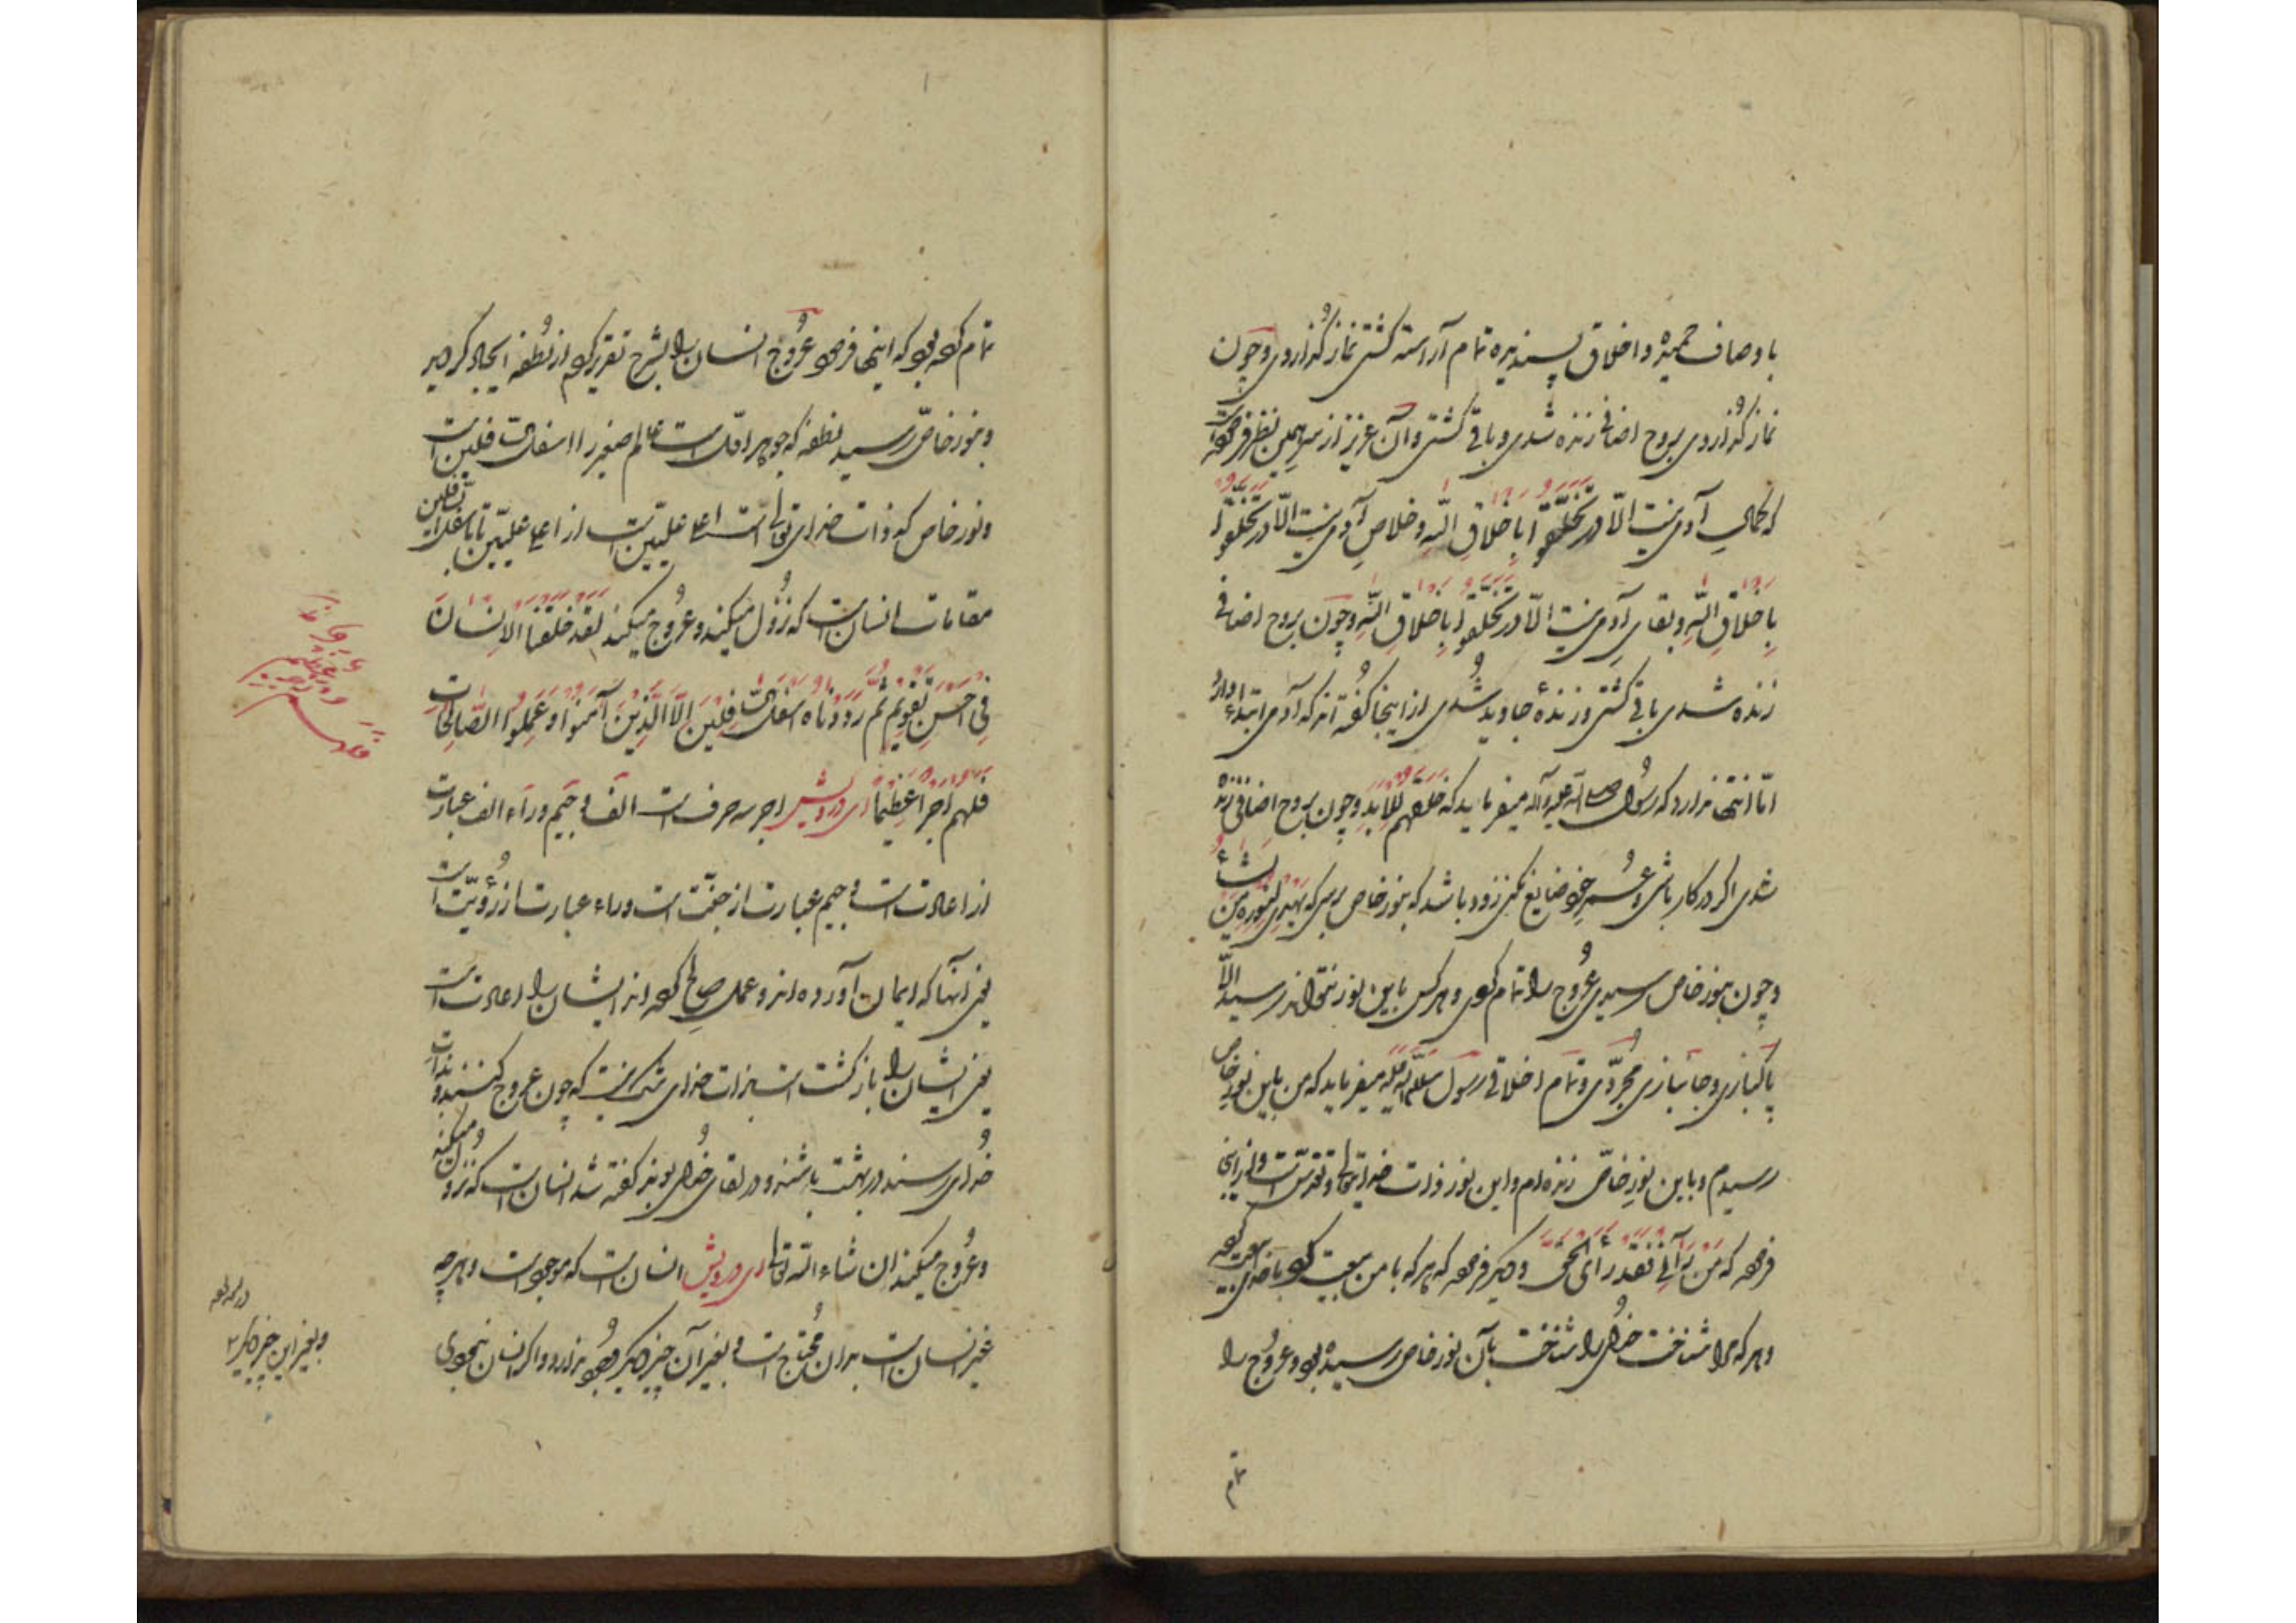 باوصاف حمیده و اخلاق پسندیده تمام آراسته گشتی نماز گذاردی و چون
نماز گذاردی بروح اضافی زنده شدی و باقی گشتی و آن عزیز از سر همین نظر فرموده است
که کمال آدمی نیست الّا در تخلّقوا باخلاق اللّه و خلاص آدمی نیست الّا در تخلّقوا
باخلاق اللّه و بقای آدمی نیست الّا در تخلّقوا باخلاق اللّه و چون بروح اضافی
زنده شدی باقی گشتی و زندهٔ جاوید شدی از اینجا گفته‌اند که آدمی ابتداء دارد
امّا انتها ندارد که رسول صلی اللّه علیه و آله میفرماید که خلقتم للابد و چون بروح اضافی زنده
شدی اگر در کار باشی و عمر خود ضایع نکنی زود باشد که بنور خاص برسی که یهدی لنوره من یشاء
و چون بنور خاص رسیدی عروج را تمام کردی و هر کس باین نور نتواند رسید الّا
پاکبازی و جانبازی مجرّدی و تمام اخلاقی رسول میفرماید که من باین نور خاص
رسیدم و باین نور خاصّ زنده‌ام و این نور ذات خدای تعالی و تقدّس است و از اینجا
فرموده که من رآنی فقد رای الحق و دیگر فرموده که هر که با من بیعت کرد با خدای بیعت کرده
و هر که مرا شناخت خدای را شناخت بآن نور خاص رسیده بود و عروج را
تمام
تمام کرده بود که اینها فرمود عروج انسان را بشرح تقریر کردم از نطفه ایجاد کردیم
و بنور خاصّ رسید نطفه که جوهر اوّلست عالم صغیر را اسفل السّافلین است
و نور خاص که ذات خدای تعالی است اعلی علیّین است از اعلی علیّین تا باسفل السّافلین
مقامات انسانست که نزول میکند و عروج میکند لقد خلقنا الانسان
فی احسن تقویم ثمّ رددناه اسفل السّافلین الّا الّذین آمنوا و عملوا الصّالحات
فلهم اجرا عظیماً ای درویش اجر سه حرف است الف و جیم و راء الف عبارت
از اعادت است و جیم عبارت از جنّت است و راء عبارت از رؤیت است
یعنی آنها که ایمان آورده‌اند و عمل صالح کرده‌اند ایشان را اعادت است
یعنی ایشان را بازگشت است بذات خدای شک نیست که چون عروج کنند و بذات
خدای رسند در بهشت باشند و در لقای خدای بوند گفته شد انسانست که نزول میکند
و عروج میکند ان شاء اللّه تعالی ای درویش انسانست که موجود است و هر چه
غیر انسانست بدان محتاج است و بغیر آن چیز دیگر وجود ندارد و اگر انسان نبودی
فلهم
و بغیر این چیز دیگر